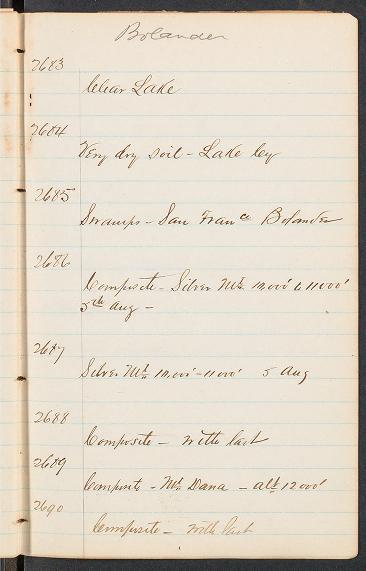 Bolander
2683
Clear Lake
2684
Very dry soil - Lake Co.
2685
Swamps - San Franco Bolander
2686
Composite - Silver Mt. 10,000' to 11000'
5th Aug -
2687
Silver Mt. 10,000' - 11000' 5 Aug
2688
Composite - with last
2689
Composite - Mt. Dana - alt 12000'
2690
Composite - with last